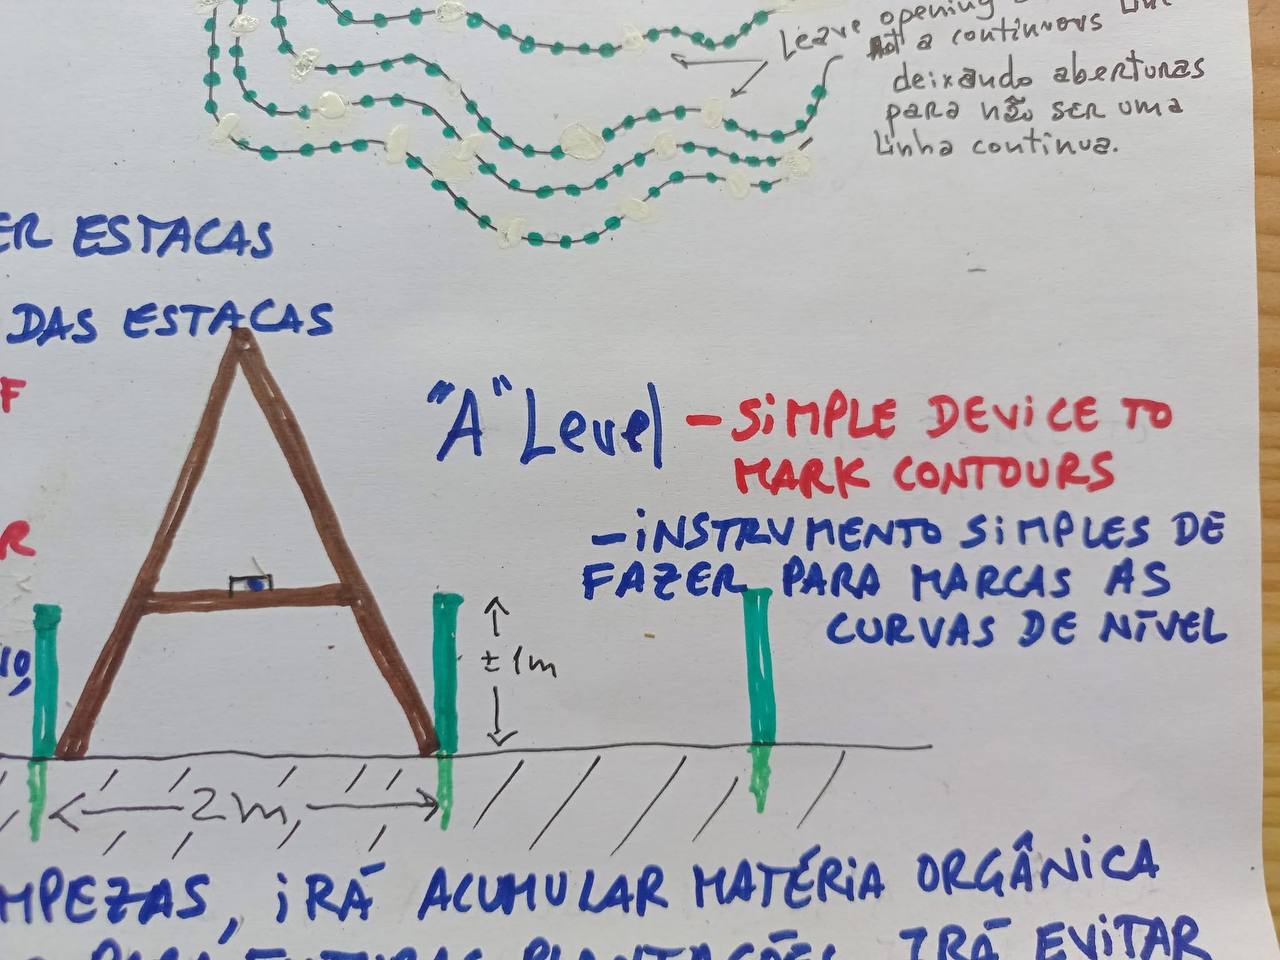 Leave opening
not a continuous line
deixando aberturas
para não ser uma
linha continua.
ER ESTACAS
DAS ESTACAS
F
"A" Level - SiMPLE DEVICE TO
MARK CONTOURS
R
- iNSTRUMENTO SiMPLES DE
FAZER PARA MARCAS AS
CURVAS DE NÍVEL
± 1m
2m
MPEZAS, iRÁ ACUMULAR MATÉRiA ORGÂNICA
PARA FUTURAS PLANTAÇÕES, IRÁ EViTAR